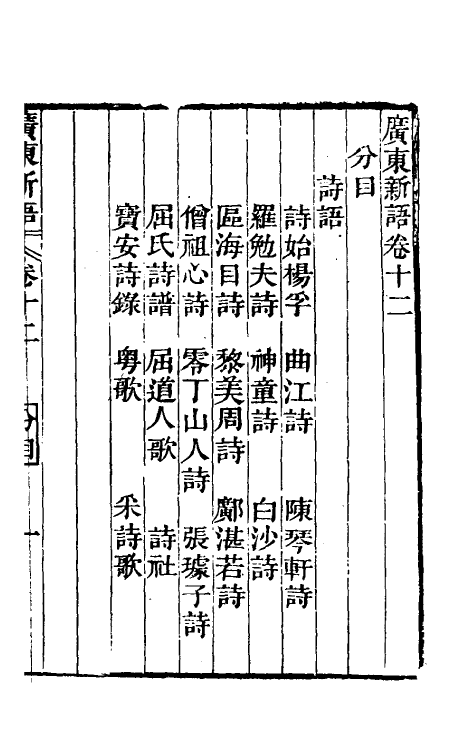 廣東新語卷十二
分目
詩語
詩始楊孚　曲江詩　陳琴軒詩
羅勉夫詩　神童詩　白沙詩
區海目詩　黎美周詩　鄺湛若詩
僧祖心詩　零丁山人詩　張璩子詩
屈氏詩譜　屈道人歌　詩社
寶安詩錄　粵歌　采詩歌
廣東新語　卷十二　分目　一